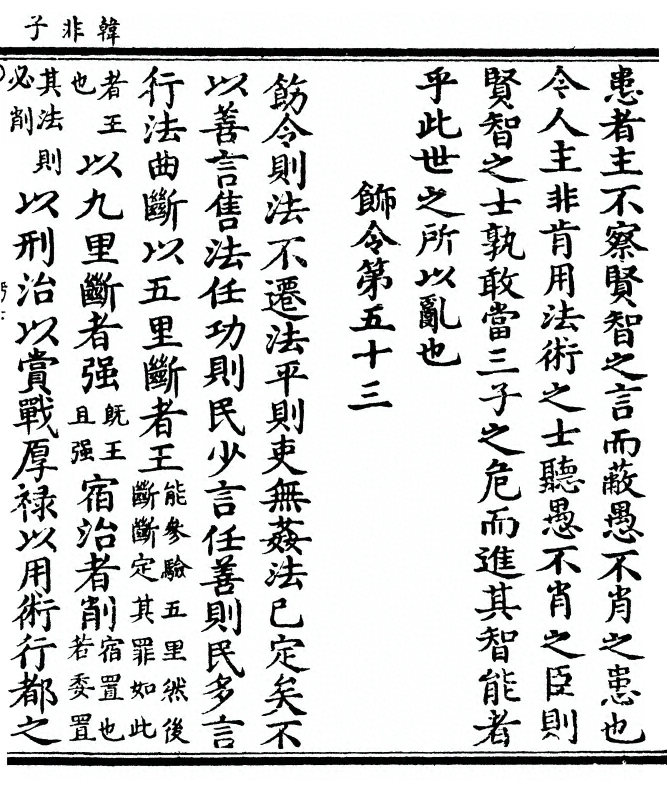 韓非子
患者主不察賢智之言而蔽愚不肖之患也
今人主非肯用法術之士聽愚不肖之臣則
賢智之士孰敢當三子之危而進其智能者
乎此世之所以亂也
飾令第五十三
飭令則法不遷法平則吏無姦法已定矣不
以善言售法任功則民少言任善則民多言
行法曲斷以五里斷者王能參驗五里然後斷斷定其罪如此
者王也以九里斷者强既王且强宿治者削宿置也若委置
其法則必削以刑治以賞戰厚禄以用術行都之